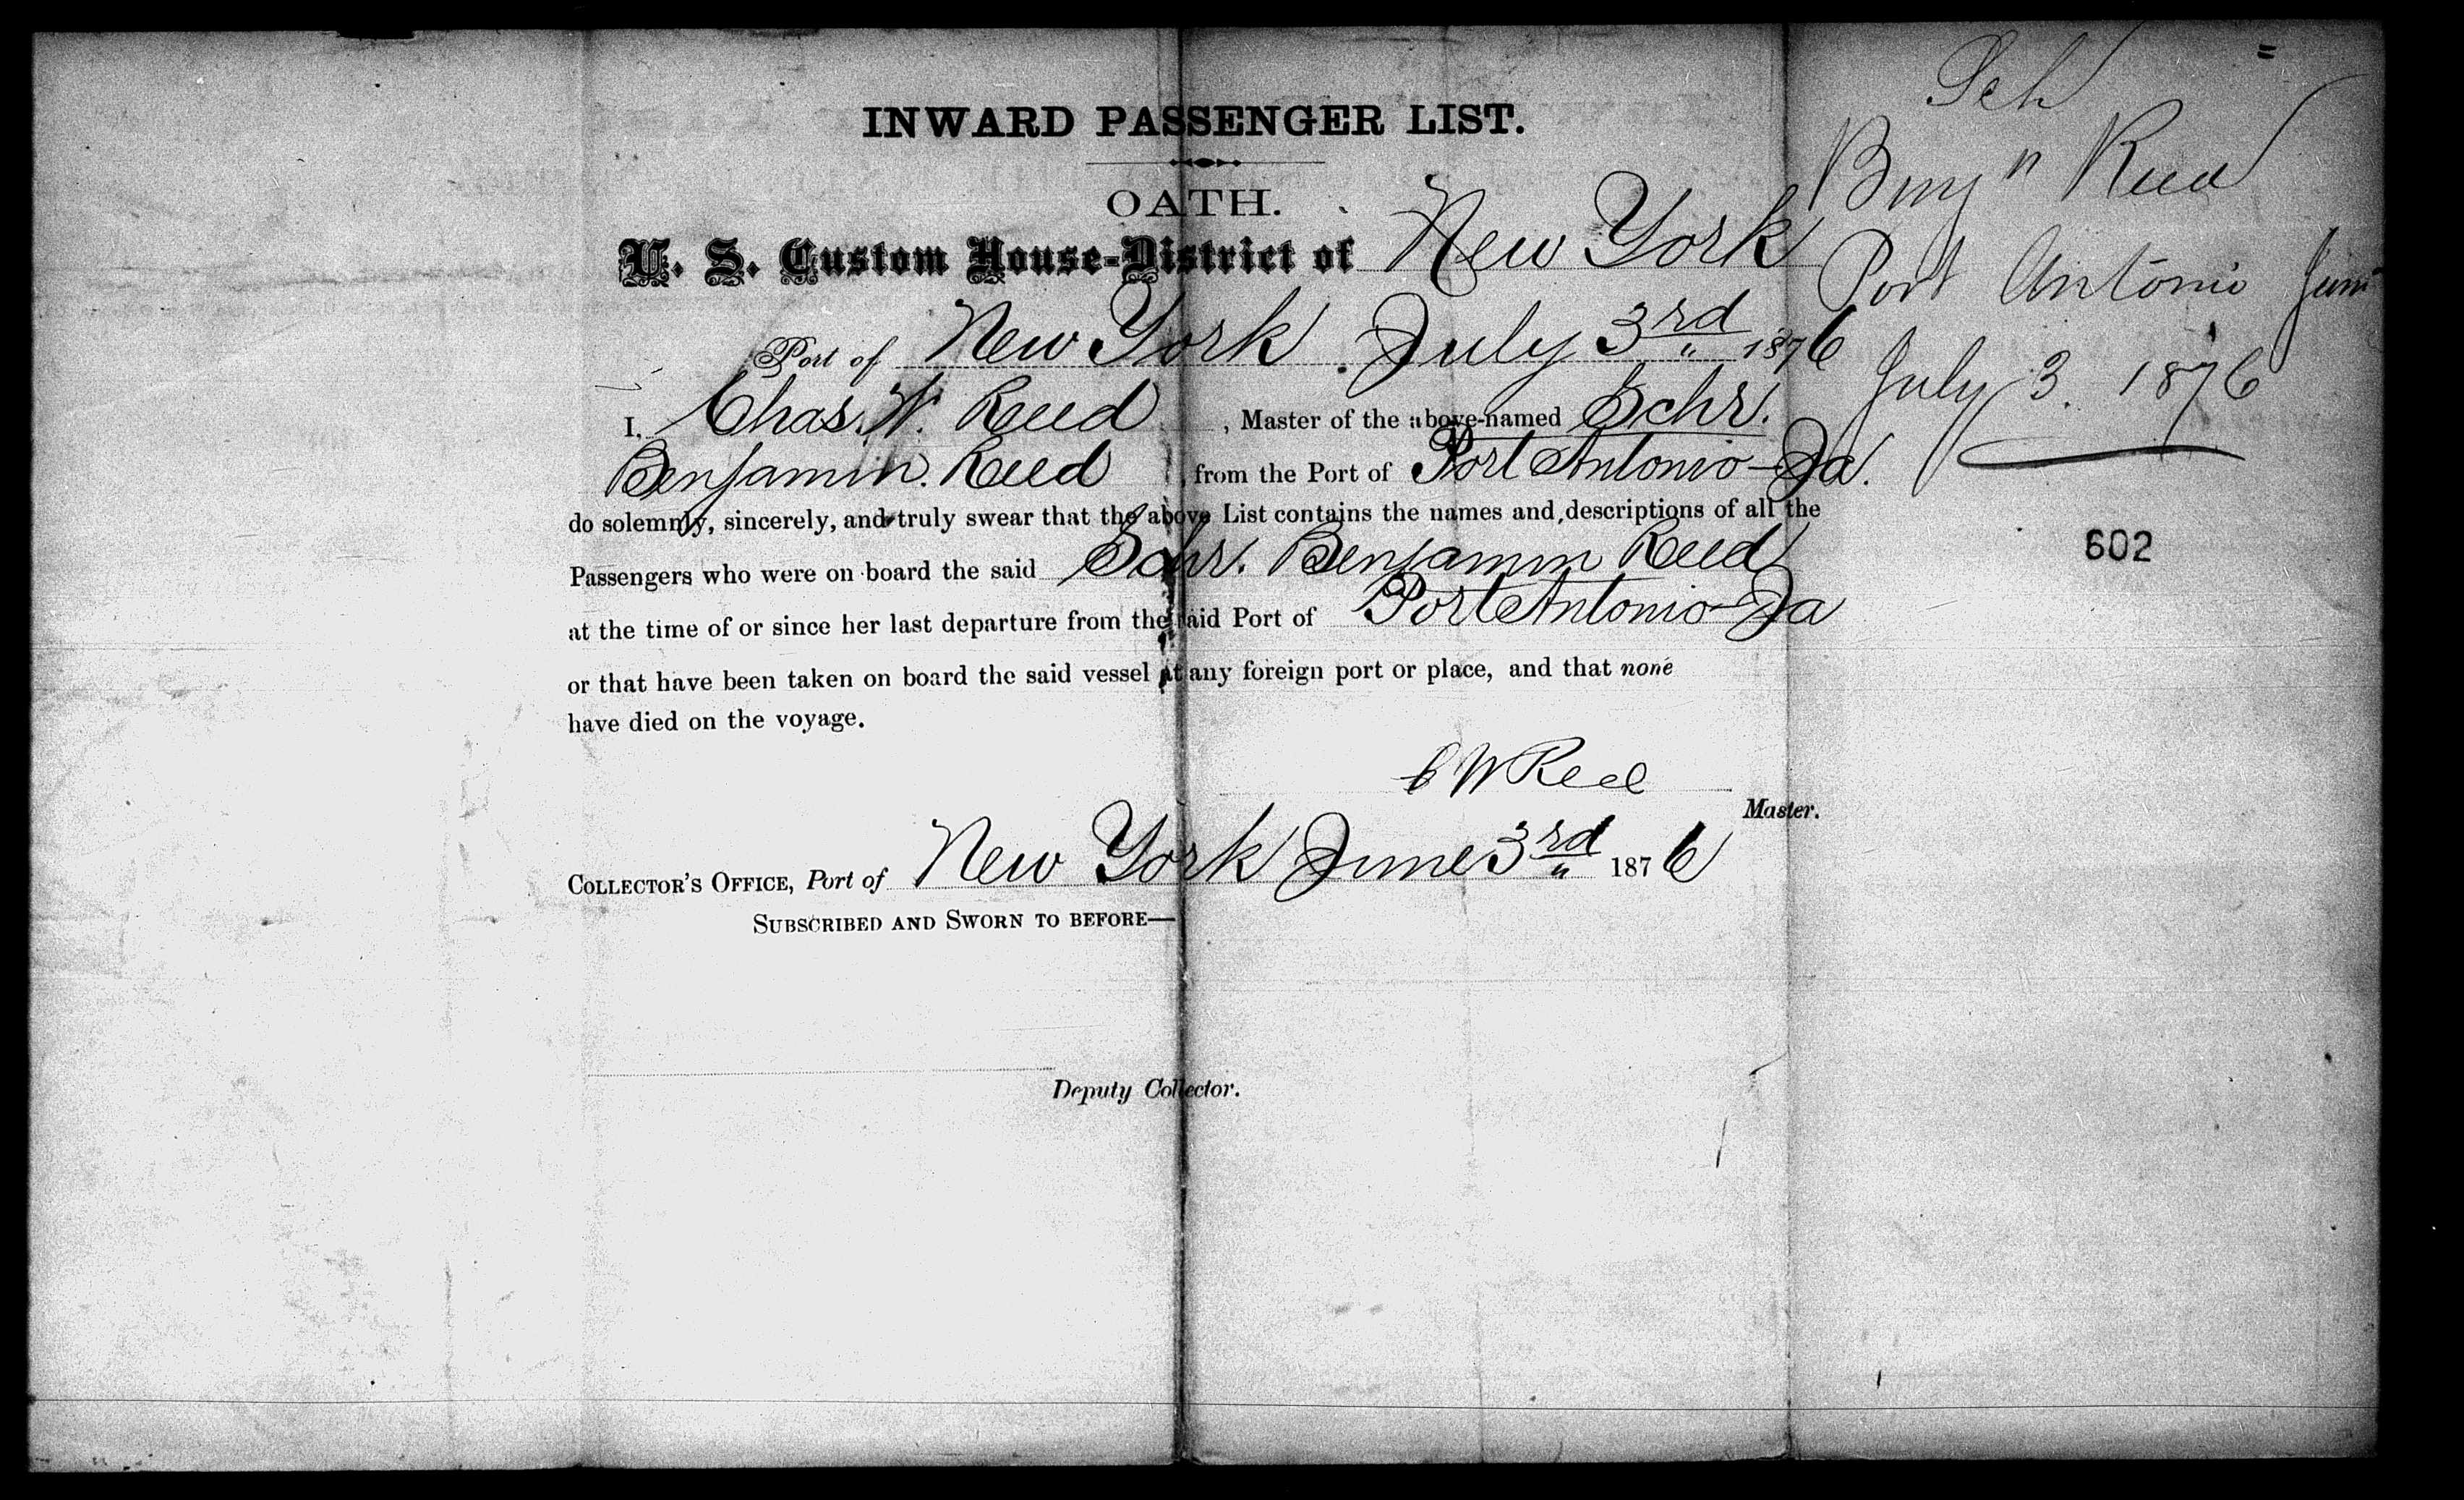 INWARD PASSENGER LIST.
OATH.
U. S. Custom House-District of New York
Port of New York. July 3rd 1876
I, Chas. W. Reed, Master of the above-named Schr.
Benjamin. Reed, from the Port of Port Antonio-Ja.
do solemnly, sincerely, and truly swear that the above List contains the names and descriptions of all the
Passengers who were on board the said Schr. Benjamin Reed
at the time of or since her last departure from the said Port of Port Antonio-Ja
or that have been taken on board the said vessel at any foreign port or place, and that none
have died on the voyage.
C W Reed
Master.
COLLECTOR'S OFFICE, Port of New York June 3rd 1876
SUBSCRIBED AND SWORN TO BEFORE—
Deputy Collector.
Sch
Benj n Reed
Port Antonio
July 3. 1876
602